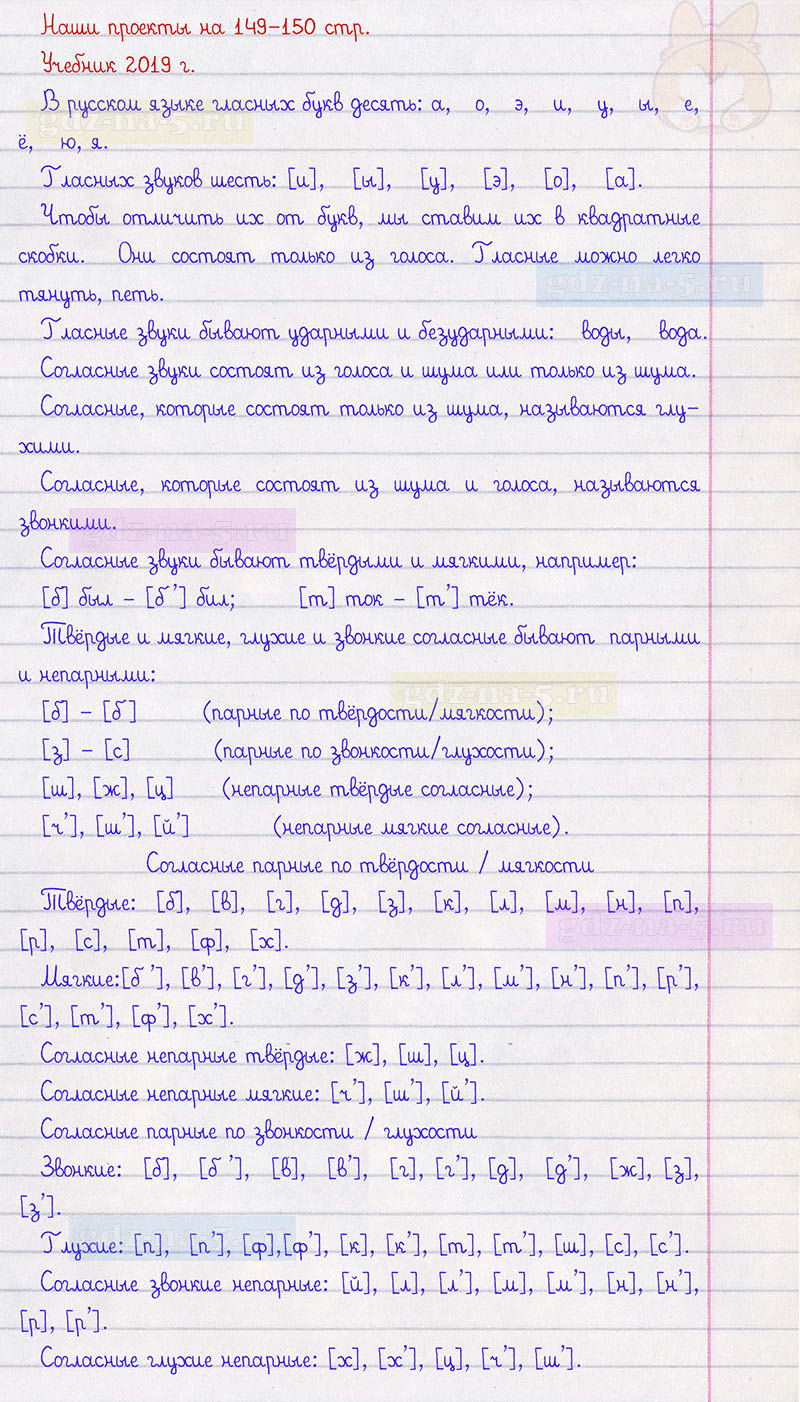 Наши проекты на 149-150 стр.
Учебник 2019 г.
В русском языке гласных букв десять: а, о, э, и, у, ы, е,
ё, ю, я.
gdz-na-5.ru
Гласных звуков шесть: [и], [ы], [у], [э], [о], [а].
Чтобы отличить их от букв, мы ставим их в квадратные
скобки. Они состоят только из голоса. Гласные можно легко
тянуть, петь.
gdz-na-5.ru
Гласные звуки бывают ударными и безударными: воды, вода.
Согласные звуки состоят из голоса и шума или только из шума.
Согласные, которые состоят только из шума, называются глу-
хими.
Согласные, которые состоят из шума и голоса, называются
звонкими.
gdz-na-5.ru
Согласные звуки бывают твёрдыми и мягкими, например:
[б] был - [б'] бил; [т] ток - [т'] тёк.
Твёрдые и мягкие, глухие и звонкие согласные бывают парными
и непарными:
gdz-na-5.ru
[б] - [б'] (парные по твёрдости/мягкости);
[з] - [с] (парные по звонкости/глухости);
[ш], [ж], [ц] (непарные твёрдые согласные);
[ч'], [ш'], [й'] (непарные мягкие согласные).
Согласные парные по твёрдости / мягкости
Твёрдые: [б], [в], [г], [д], [з], [к], [л], [м], [н], [п],
[р], [с], [т], [ф], [х].
gdz-na-5.ru
Мягкие:[б'], [в'], [г'], [д'], [з'], [к'], [л'], [м'], [н'], [п'], [р'],
[с'], [т'], [ф'], [х'].
Согласные непарные твёрдые: [ж], [ш], [ц].
Согласные непарные мягкие: [ч'], [ш'], [й'].
Согласные парные по звонкости / глухости
Звонкие: [б], [б'], [в], [в'], [г], [г'], [д], [д'], [ж], [з],
[з'].
gdz-na-5.ru
Глухие: [п], [п'], [ф],[ф'], [к], [к'], [т], [т'], [ш], [с], [с'].
Согласные звонкие непарные: [й], [л], [л'], [м], [м'], [н], [н'],
[р], [р'].
Согласные глухие непарные: [х], [х'], [ц], [ч'], [ш'].